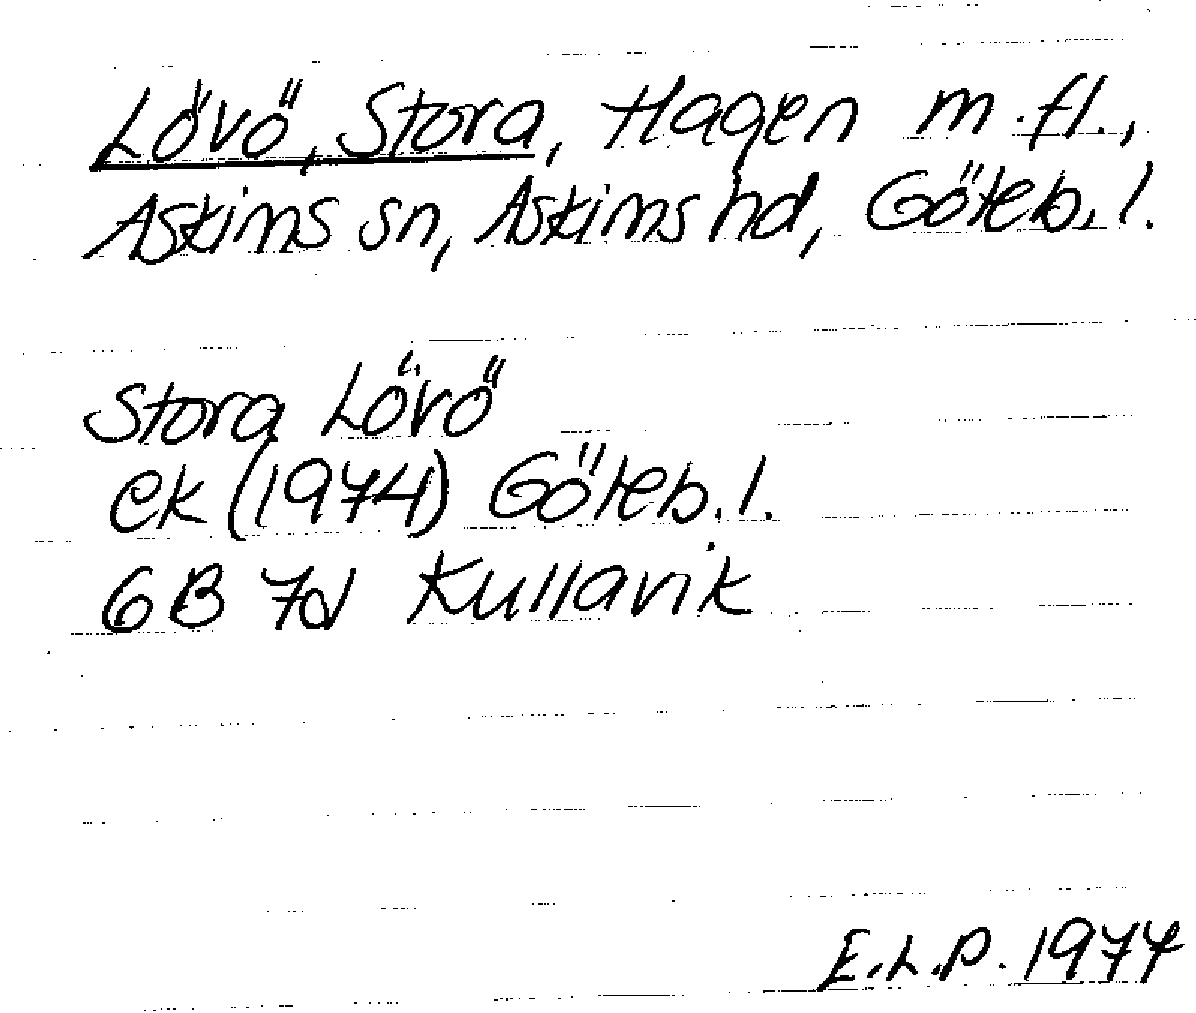 Lövö, Stora, Hagen m.fl.,
Askims sn, Askims hd, Göteb.l.
Stora Lövö
ek (1974) Göteb.l.
6B 7d Kullavik
E.L.P. 1974